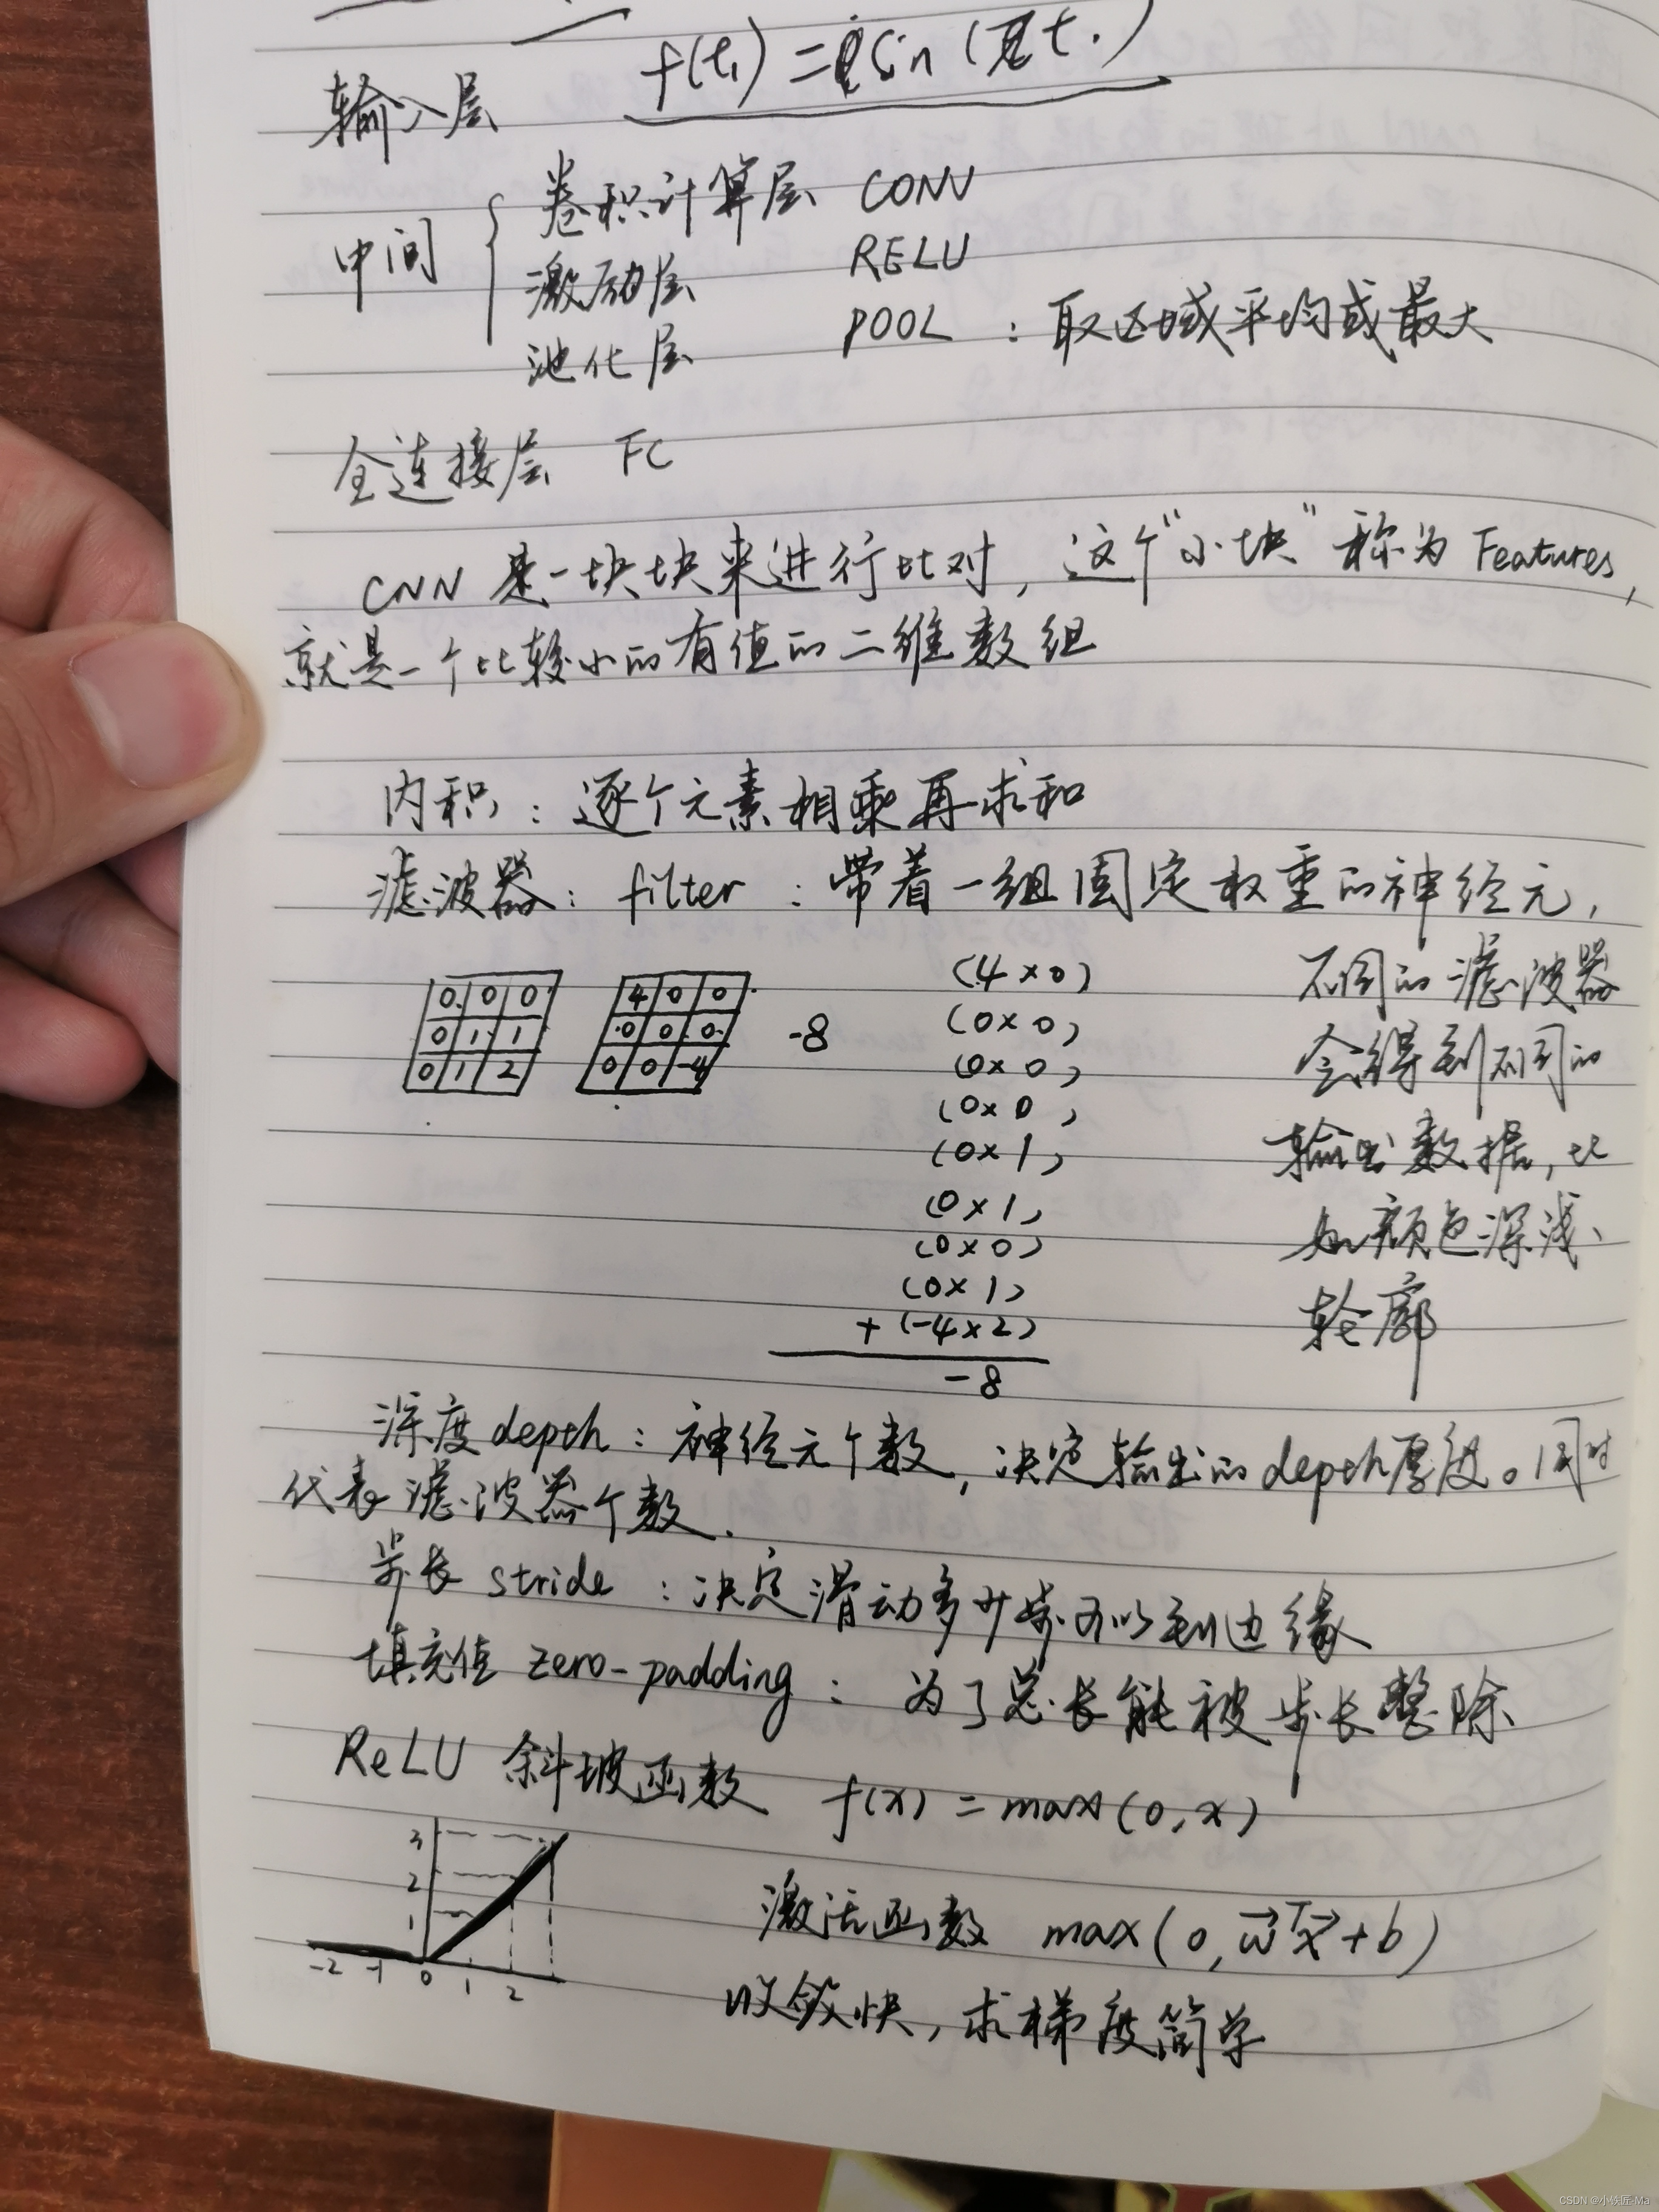 f(t₁) = sin(πt.)
输入层
中间
卷积计算层 CONV
激励层 RELU
池化层 POOL : 取区域平均或最大
全连接层 FC
CNN 是一块块来进行比对，这个“小块”称为 Features,
就是一个比较小的有值的二维数组
内积：逐个元素相乘再求和
滤波器：filter ：带着一组固定权重的神经元，
不同的滤波器
会得到不同的
输出数据，比
如颜色深浅、
轮廓
0 0 0
0 1 1
0 1 2
4 0 0
0 0 0
0 0 -4
-8
(4×0)
(0×0)
(0×0)
(0×0)
(0×1)
(0×1)
(0×0)
(0×1)
+ (-4×2)
-8
深度 depth：神经元个数，决定输出的 depth 厚度。同时
代表滤波器个数.
步长 stride ：决定滑动多少步可以到边缘
填充值 zero-padding：为了总长能被步长整除
ReLU 斜坡函数 f(x) = max(0,x)
3
2
1
-2 -1 0 1 2
激活函数 max(0, w⃗ᵀx⃗+b)
收敛快，求梯度简单
CSDN @小铁匠-Ma